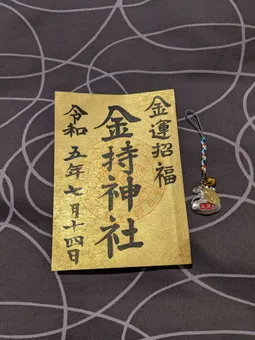 金運招福
金持神社
令和五年七月十四日